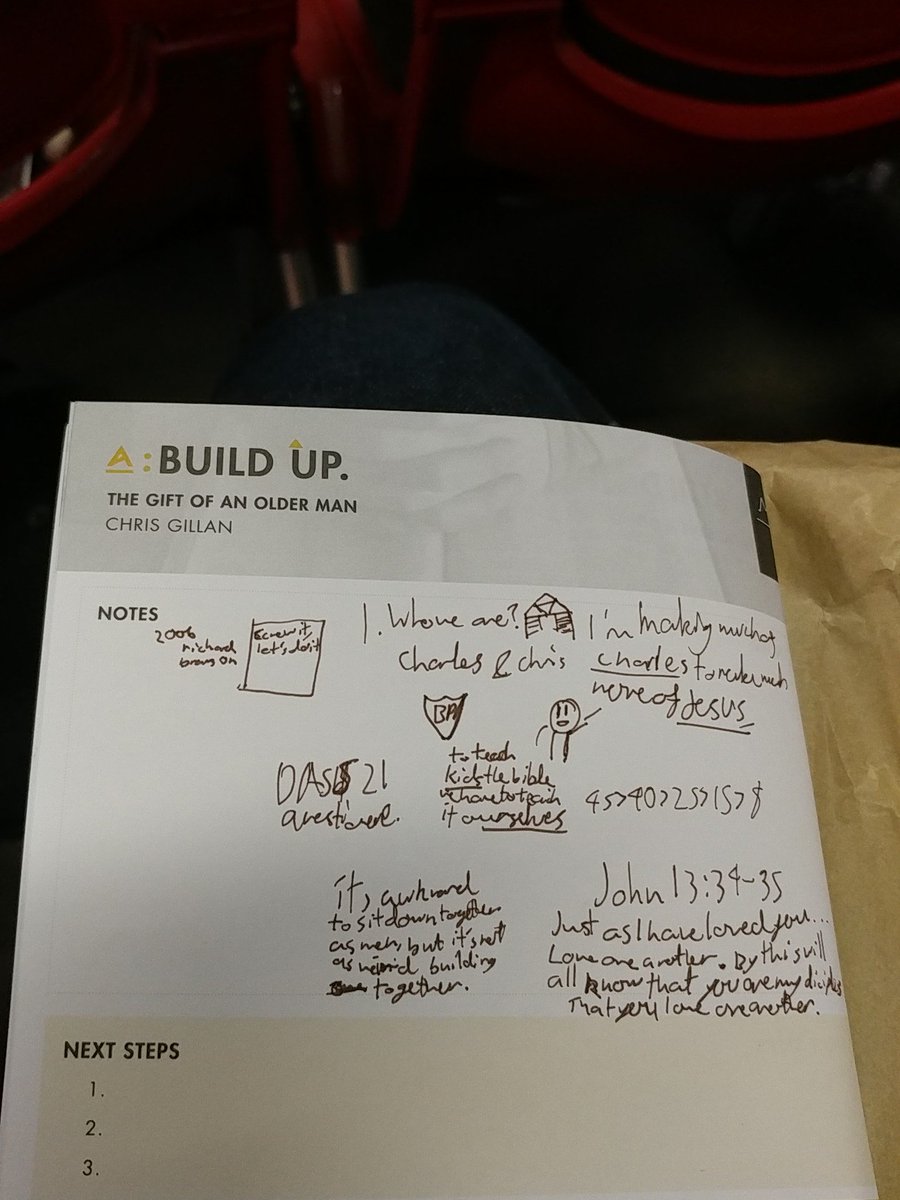 A: BUILD UP.
THE GIFT OF AN OLDER MAN
CHRIS GILLAN
NOTES
2006
richard
screw it,
let's do it
1. Who we are?
Charles & chris
I'm making much of
charles to make much
more of Jesus
BA
to teach
kids the bible
we have to
it ourselves
21
questions.
45>40>25>15>8
it's awkward
to sit down together
as men, but it's not
as weird building
together.
John 13:34-35
Just as I have loved you...
Love one another. By this will
all know that you are my
That you love one another.
NEXT STEPS
1.
2.
3.